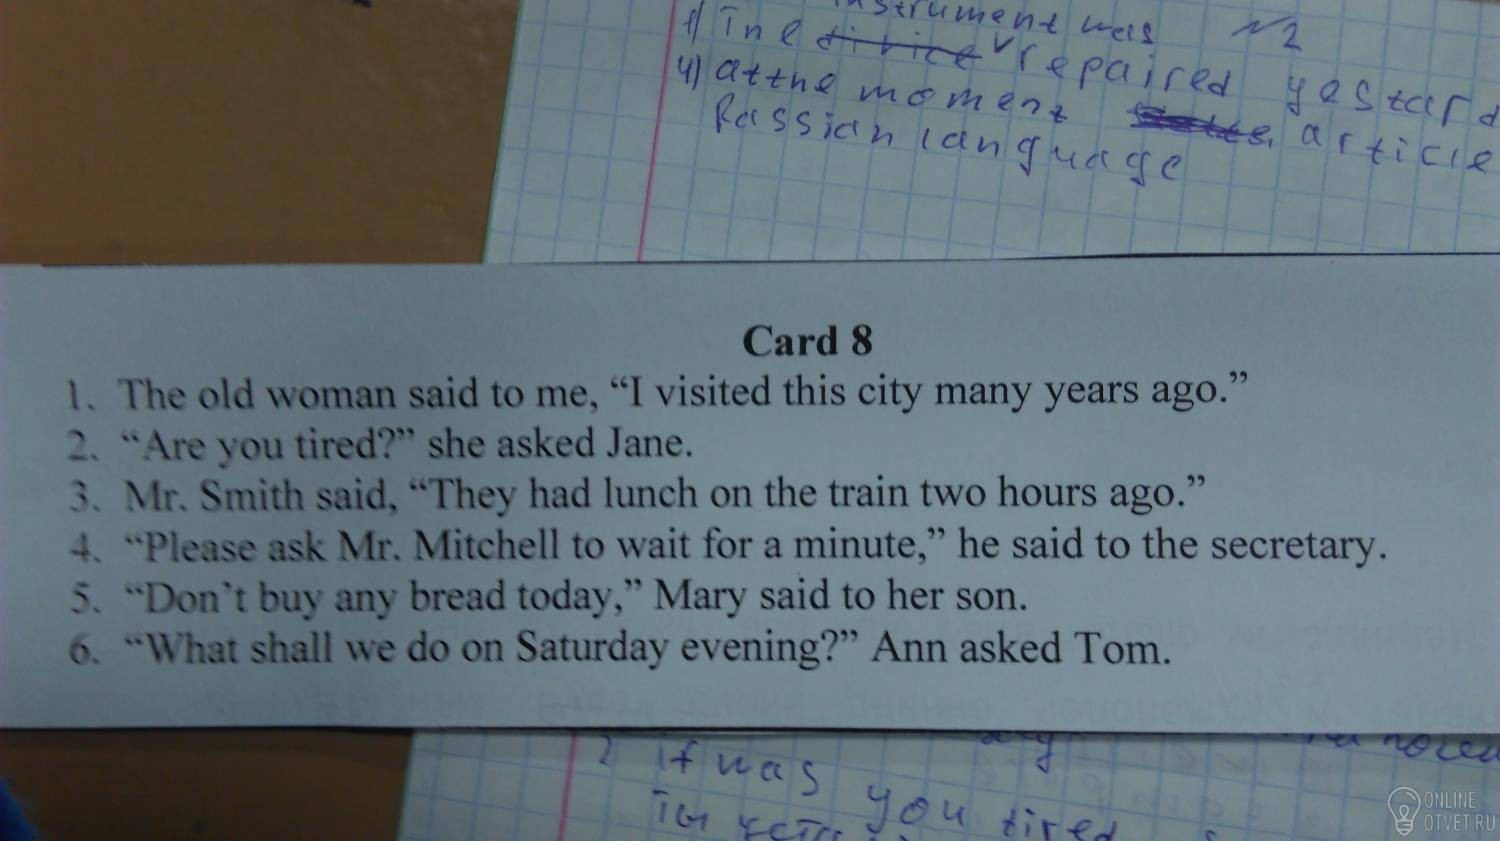 instrument was №2
1) The repaired yestard
4) at the moment article
Russian language
Card 8
1. The old woman said to me, “I visited this city many years ago.”
2. “Are you tired?” she asked Jane.
3. Mr. Smith said, “They had lunch on the train two hours ago.”
4. “Please ask Mr. Mitchell to wait for a minute,” he said to the secretary.
5. “Don’t buy any bread today,” Mary said to her son.
6. “What shall we do on Saturday evening?” Ann asked Tom.
2 if was you tired
ты
ONLINE
OTVET.RU